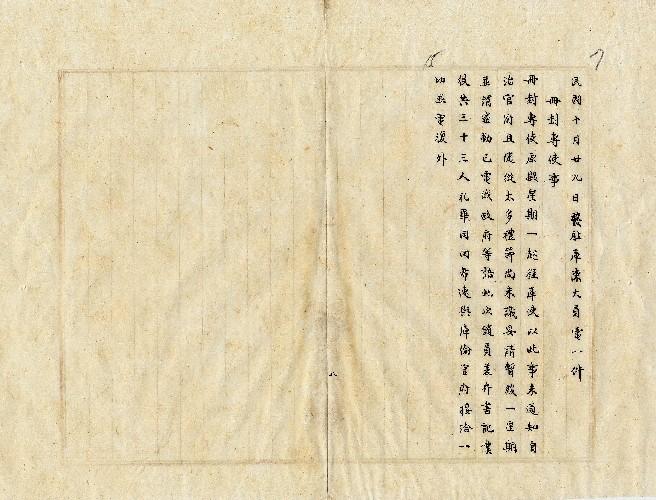 民國十月廿九日發駐庫倫大員電一件
冊封專使事
冊封專使原擬星期一起程庫使以此事未通知自
治官府且從者太多禮節尚未議妥請暫緩一星期
並請並勸已電滅政府等語此次隨員兼行書記員
役共三十三人禮畢同回希速與庫倫官府接洽一
切並電復外